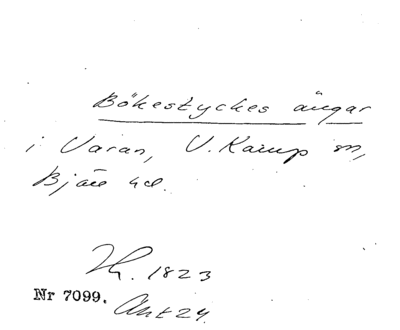 Bökestyckes ängar
i Varan, V. Karup sn,
Bjäre hd.
1823
Nr 7099. Akt 24.